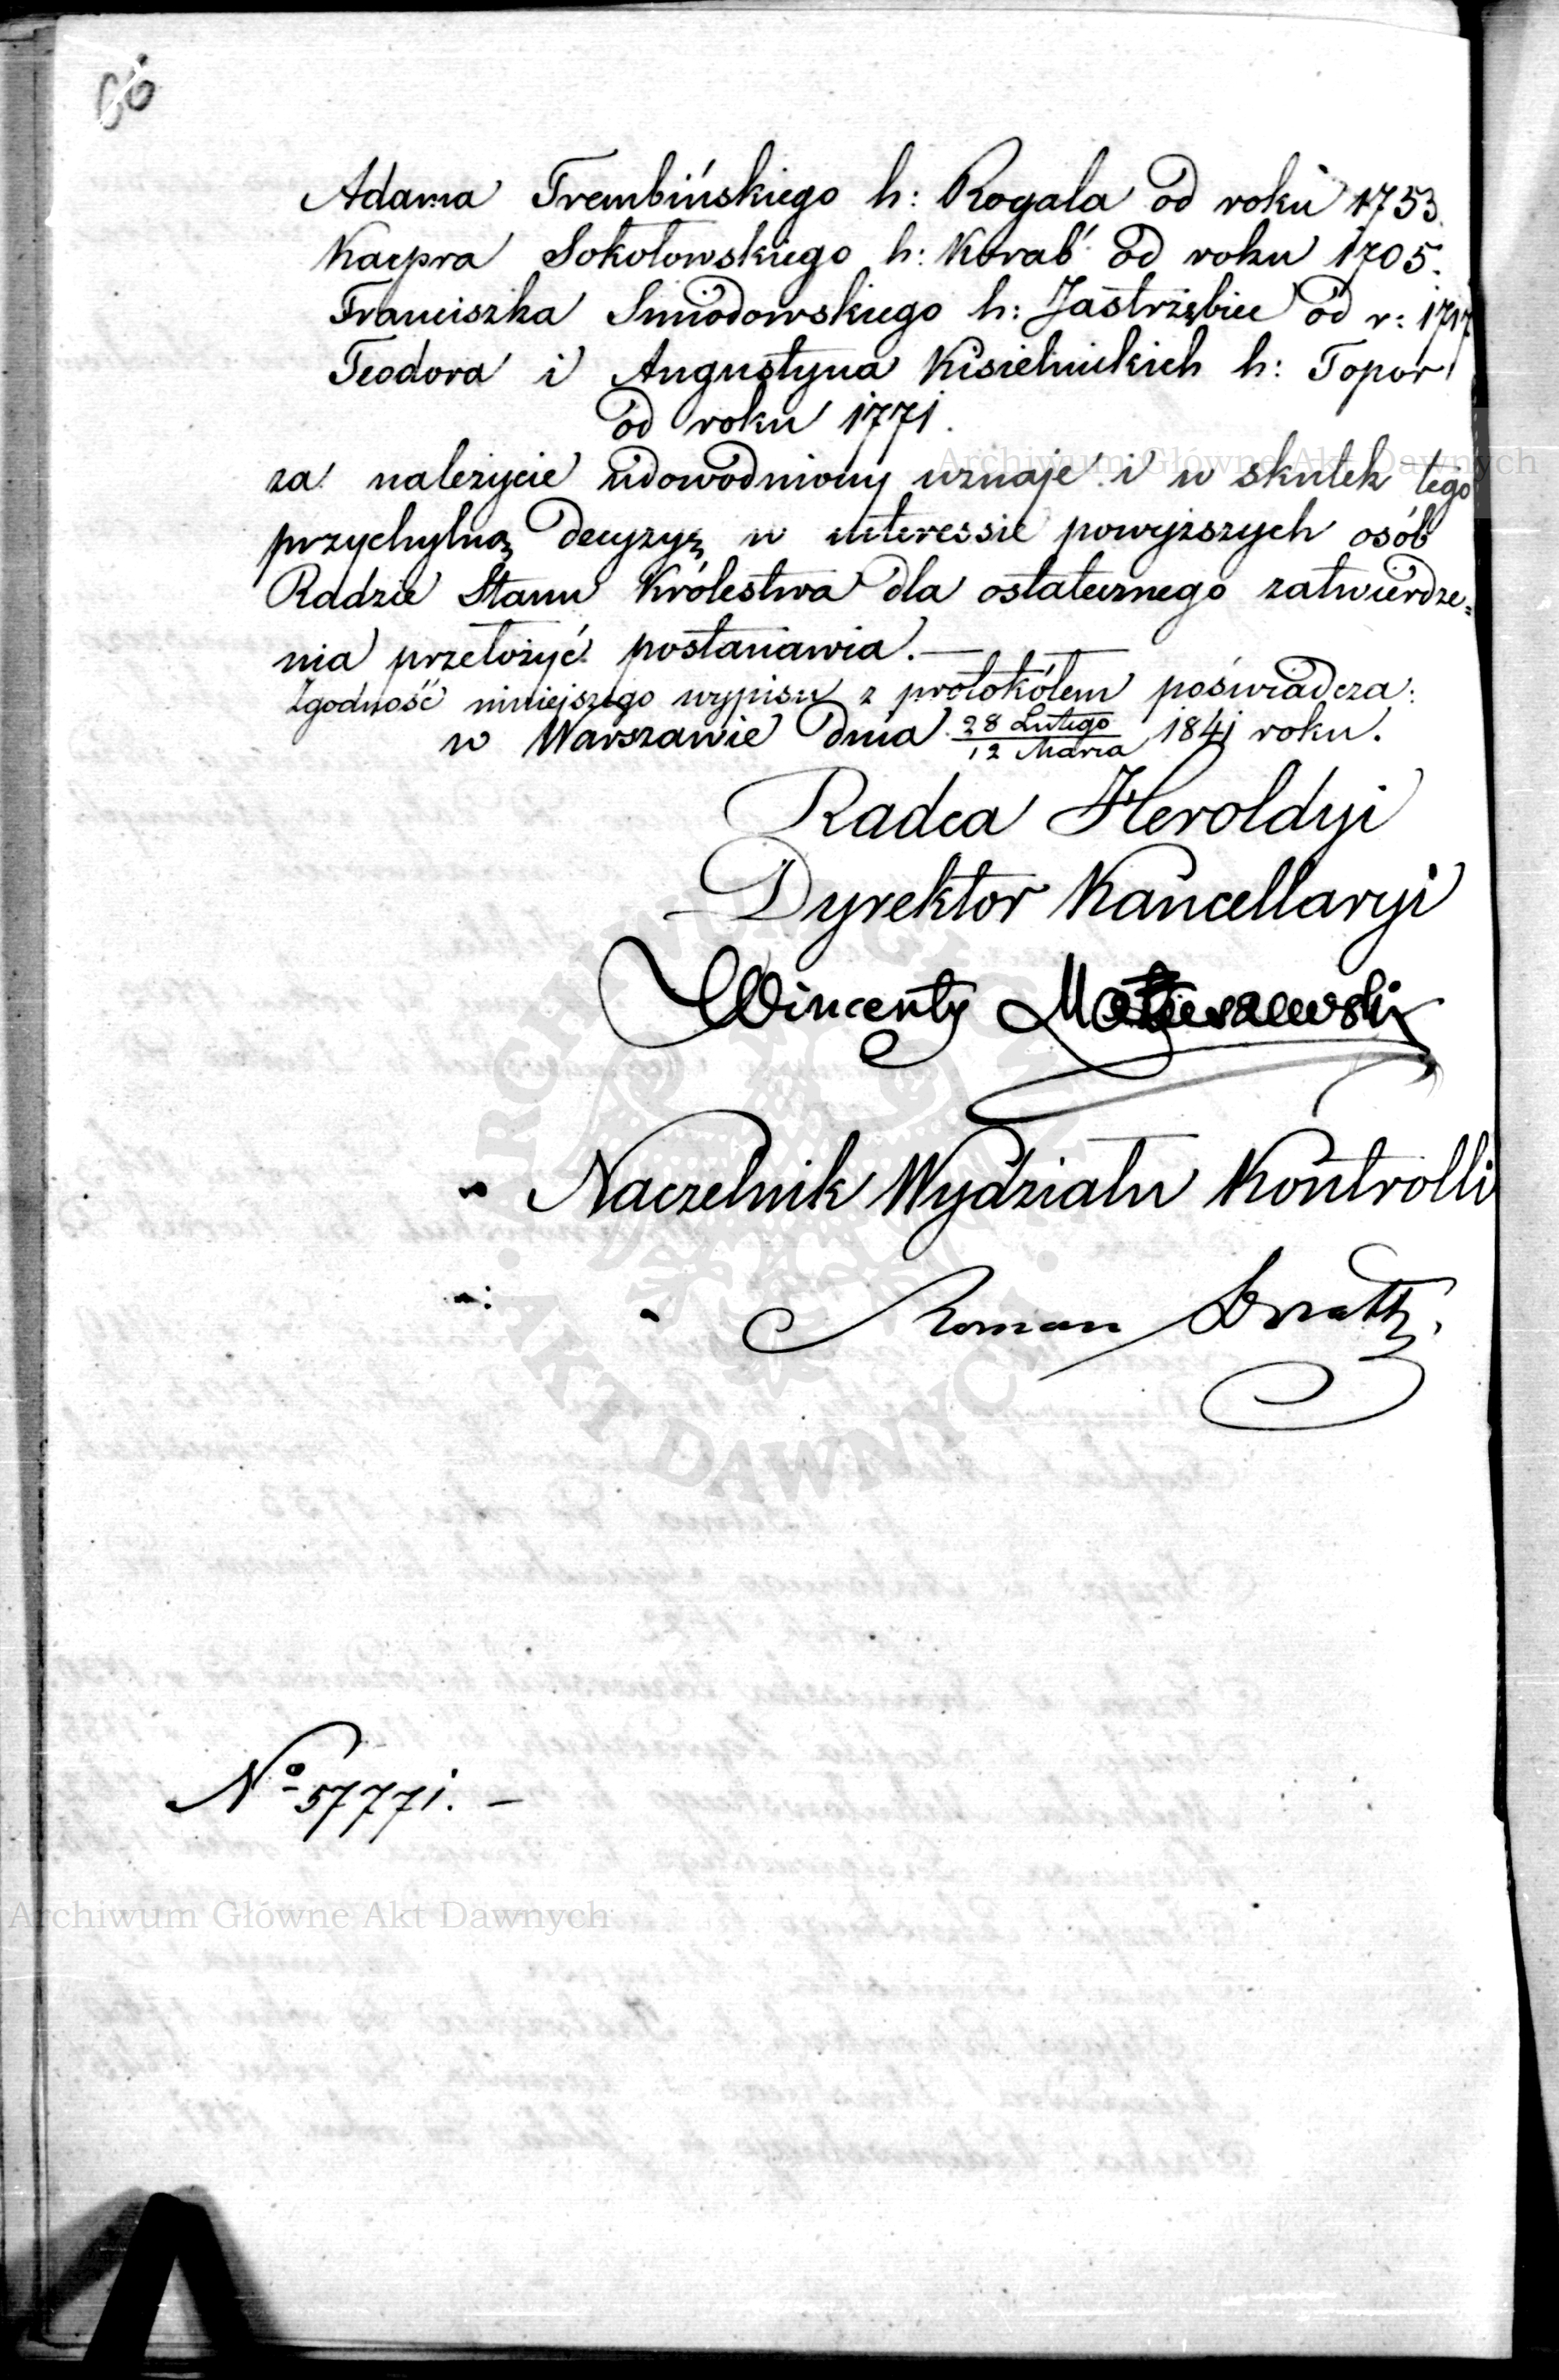 66
Adama Trembińskiego h: Rogala od roku 1753.
Kacpra Sokołowskiego h: Korab' od roku 1705.
Franciszka Smiodowskiego h: Jastrzębiec od r: 1717
Teodora i Augustyna Kisielnickich h: Topor
od roku 1771.
Archiwum Główne Akt Dawnych
za należycie udowodniony uznaje i w skutek tego
przychylną decyzyę w interessie powyższych osób
Radzie Stanu Królestwa dla ostatecznego zatwierdze=
nia przełożyć postanawia.—
Zgodność niniejszego wypisu z protokółem poświadcza:
w Warszawie dnia 28 Lutego / 12 Marca 1841 roku.
Radca Heroldyi
Dyrektor Kancellaryi
Wincenty Matuszewski
Naczelnik Wydziału Kontrolli
Roman
ARCHIWUM GŁÓWNE · AKT DAWNYCH ·
No 57771. —
Archiwum Główne Akt Dawnych